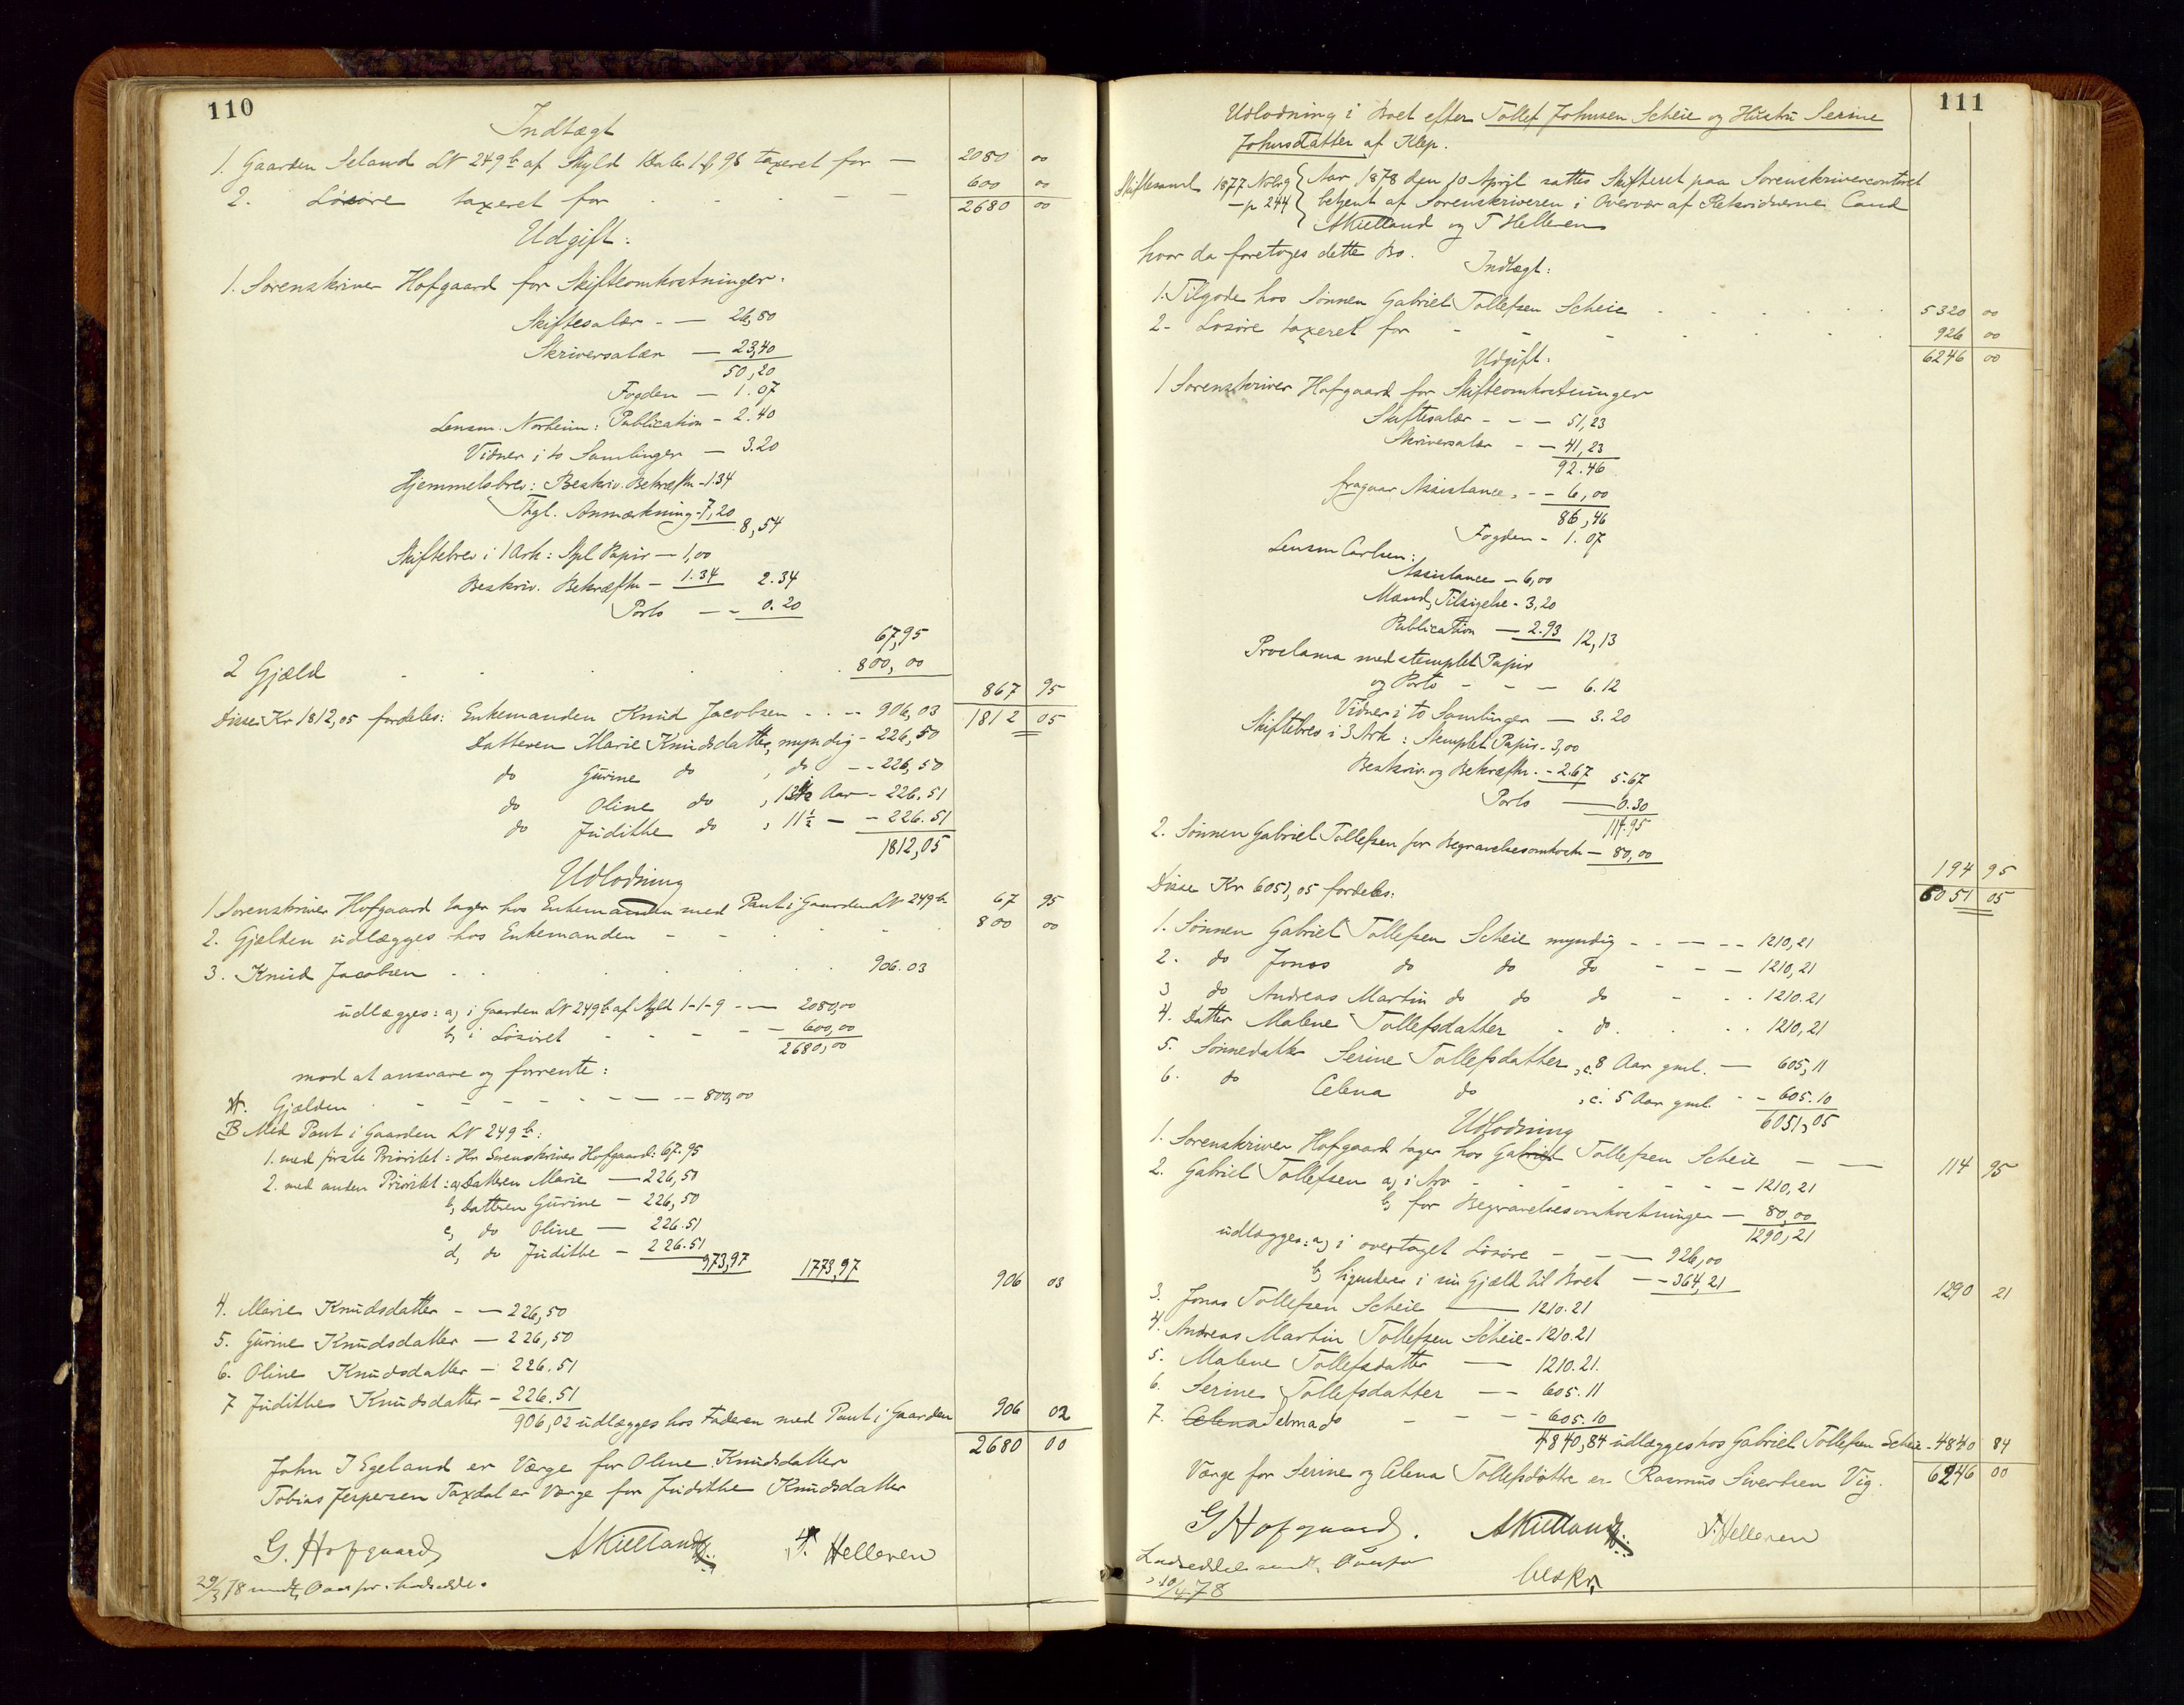 110
Indtægt
1. Gaarden Seland LN 249 b af Skyld 1 Daler 1 ß 98 taxeret for — 2080 00
2. Løsøre taxeret for 600 00
2680 00
Udgift:
1. Sorenskriver Hofgaard for Skifteomkostninger.
Skiftesalær - — 26,80
Skriversalær — 23,40
50,20
Fogden — 1.07
Lensm. Norheim: Publication - 2.40
Vidner i to Samlinger — 3.20
Hjemmelsbrev: Beskriv. Bekræftn - 1.34
Thgl. Anmærkning - 7,20 8,54
Skiftebrev i 1 Ark: Stpl Papir — 1,00
Beskriv. Bekræftn — 1.34 2.34
Porto — - 0.20
67,95
2 Gjæld 800,00
867 95
Disse Kr 1812,05 fordeles: Enkemanden Knud Jacobsen - - 906,03 1812 05
Datteren Marie Knudsdatter, myndig - 226,50
do Gurine do , do - - 226,50
do Oline do , 13½ Aar - 226.51
do Judithe do , 11½ — - 226.51
1812,05
Udlodning
1 Sorenskriver Hofgaard tager hos Enkemanden med Pant i Gaarden LN 249 b 67 95
2. Gjælden udlægges hos Enkemanden - - 800 00
3. Knud Jacobsen 906.03
udlægges: a, i Gaarden LN 249 b af Skyld 1-1-9 - — 2080,00
b, i Løsøret - - - 600,00
2680,00
mod at ansvare og forrente:
A. Gjælden - - - 800,00
B Med Pant i Gaarden LN 249 b:
1. med første Prioritet: Hr Sorenskriver Hofgaard: 67.95
2. med anden Prioritet: a, Datteren Marie — 226,50
b, Datteren Gurine — 226,50
c, do Oline — 226.51
d, do Judithe — 226.51 973,97 1773,97
906 03
4. Marie Knudsdatter - — 226,50
5. Gurine Knudsdatter — 226,50
6. Oline Knudsdatter — 226.51
7 Judithe Knudsdatter - 226.51
906,02 udlægges hos Faderen med Pant i Gaarden 906 02
2680 00
John J Egeland er Værge for Oline Knudsdatter
Tobias Jespersen Taxdal er Værge for Judithe Knudsdatter
G. Hofgaard AKielland T. Helleren
29/3 78
111
Udlodning i Boet efter Tollef Johnsen Scheie og Hustru Serine
Johnsdatter af Klep.
Skiftesaml 1877 No 619 Aar 1878 den 10 April sattes Skifteret paa Sorenskrivercontoret
- p 244 betjent af Sorenskriveren i Overvær af Retsvidnerne Cand
AKielland og T Helleren
hvor da foretoges dette Bo.
Indtægt:
1. Tilgode hos Sønnen Gabriel Tollefsen Scheie 5320 00
2- Løsøre taxeret for 926 00
6246 00
Udgift:
1 Sorenskriver Hofgaard for Skifteomkostninger
Skiftesalær - - — 51,23
Skriversalær - — 41,23
92.46
fragaar Assistance, - - 6,00
86,46
Fogden - 1.07
Lensm Carlsen:
Assistance — 6,00
Mænds Tilsigelse - 3,20
Publication — 2.93 12,13
Proclama med stemplet Papir
og Porto - - — 6.12
Vidner i to Samlinger — 3.20
Skiftebrev i 3 Ark: Stemplet Papir - 3,00
Beskriv. og Bekræftn. - 2.67 5.67
Porto — 0.30
114.95
2. Sønnen Gabriel Tollefsen for Begravelsesomkostn — 80,00
194 95
Disse Kr 6051,05 fordeles: 6051 05
1. Sønnen Gabriel Tollefsen Scheie myndig - - — - - 1210,21
2. do Jonas do do do - - — 1210,21
3 do Andreas Martin do do do - - . 1210.21
4. Datter Malene Tollefsdatter - do. 1210,21
5. Sønnedatter Serine Tollefsdatter, c. 8 Aar gml. — 605,11
6. do Celena do , c. 5 Aar gml. - - 605.10
6051,05
Udlodning
1. Sorenskriver Hofgaard tager hos Gabriel Tollefsen Scheie — — 114 95
2. Gabriel Tollefsen a, i Arv - - - 1210,21
b, for Begravelsesomkostninger — 80,00
1290,21
udlægges: a, i overtaget Løsøre - - — 926,00
b, liqviderer i sin Gjæld til Boet — - 364,21 1290 21
3. Jonas Tollefsen Scheie — 1210.21
4. Andreas Martin Tollefsen Scheie - 1210.21
5. Malene Tollefsdatter — 1210.21.
6. Serine Tollefsdatter — - 605.11
7. Celena Selma do - - - 605.10
4840,84 udlægges hos Gabriel Tollefsen Scheie - 4840 84
Værge for Serine og Celena Tollefsdøttre er Rasmus Sivertsen Vig. 6246 00
G Hofgaard. AKielland T. Helleren
10/4 78